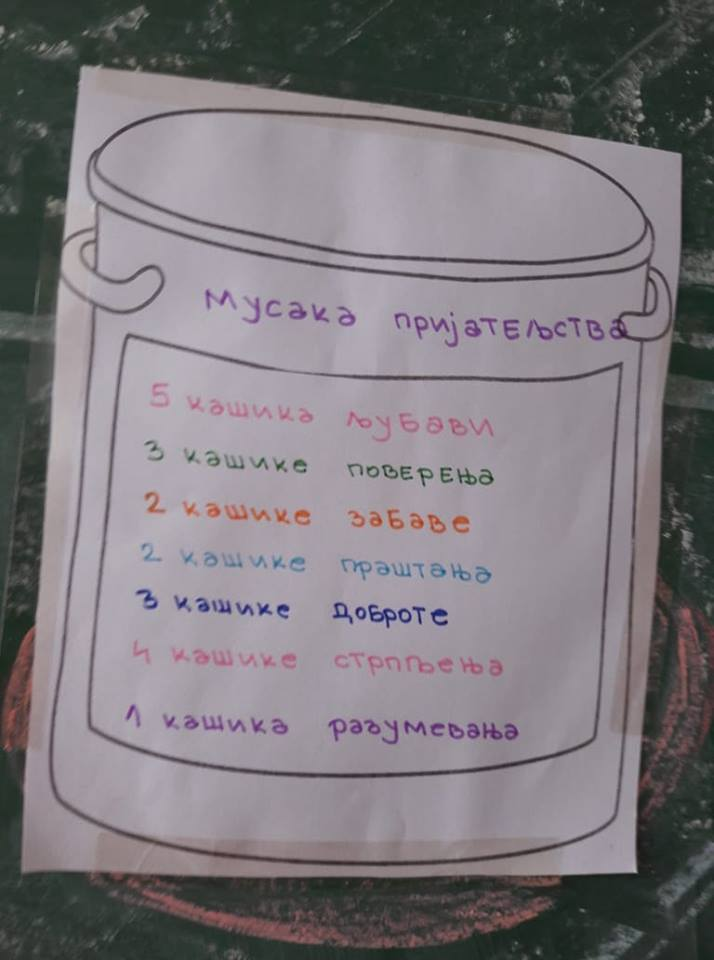 Мусака пријатељства
5 кашика љубави
3 кашике поверења
2 кашике забаве
2 кашике праштања
3 кашике доброте
4 кашике стрпљења
1 кашика разумевања